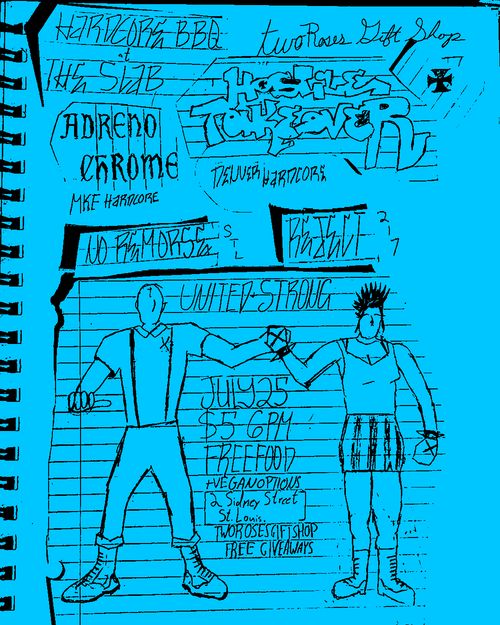 HARDCORE BBQ
at
THE SLAB
twoRoses Gift Shop
HOSTILE
TAKEOVER
ADRENO
CHROME
DENVER HARDCORE
MKE HARDCORE
NO REMORSE STL
REJECT 217
UNITED STRONG
JULY 25
$5 6PM
FREE FOOD
+VEGAN OPTIONS
2 Sidney Street
St. Louis.
TWOROSESGIFTSHOP
FREE GIVEAWAYS